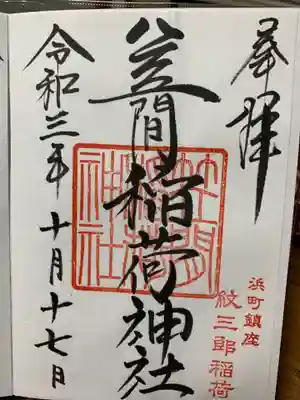 奉拝
浜町鎮座
紋三郎稲荷
笠間稲荷神社
笠間稲荷神社
令和三年十月十七日